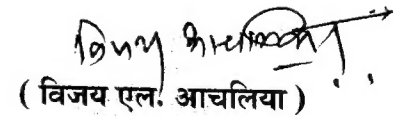 विजय आचलिया
( विजय एल. आचलिया )